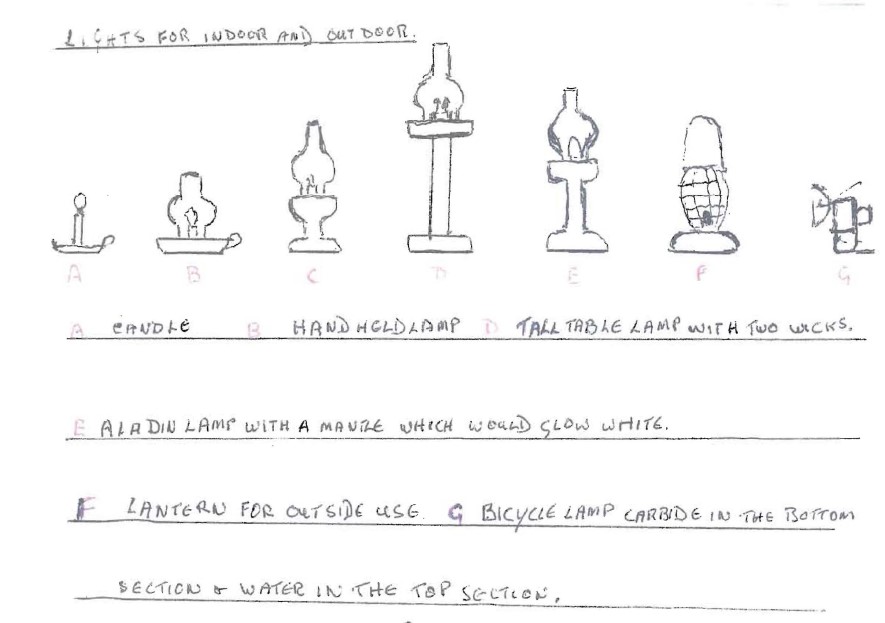 LIGHTS FOR INDOOR AND OUTDOOR.
A B C D E F G
A CANDLE B HAND HELD LAMP D TALL TABLE LAMP WITH TWO WICKS.
E ALADIN LAMP WITH A MANTLE WHICH WOULD GLOW WHITE.
F LANTERN FOR OUTSIDE USE. G BICYCLE LAMP CARBIDE IN THE BOTTOM
SECTION & WATER IN THE TOP SECTION.